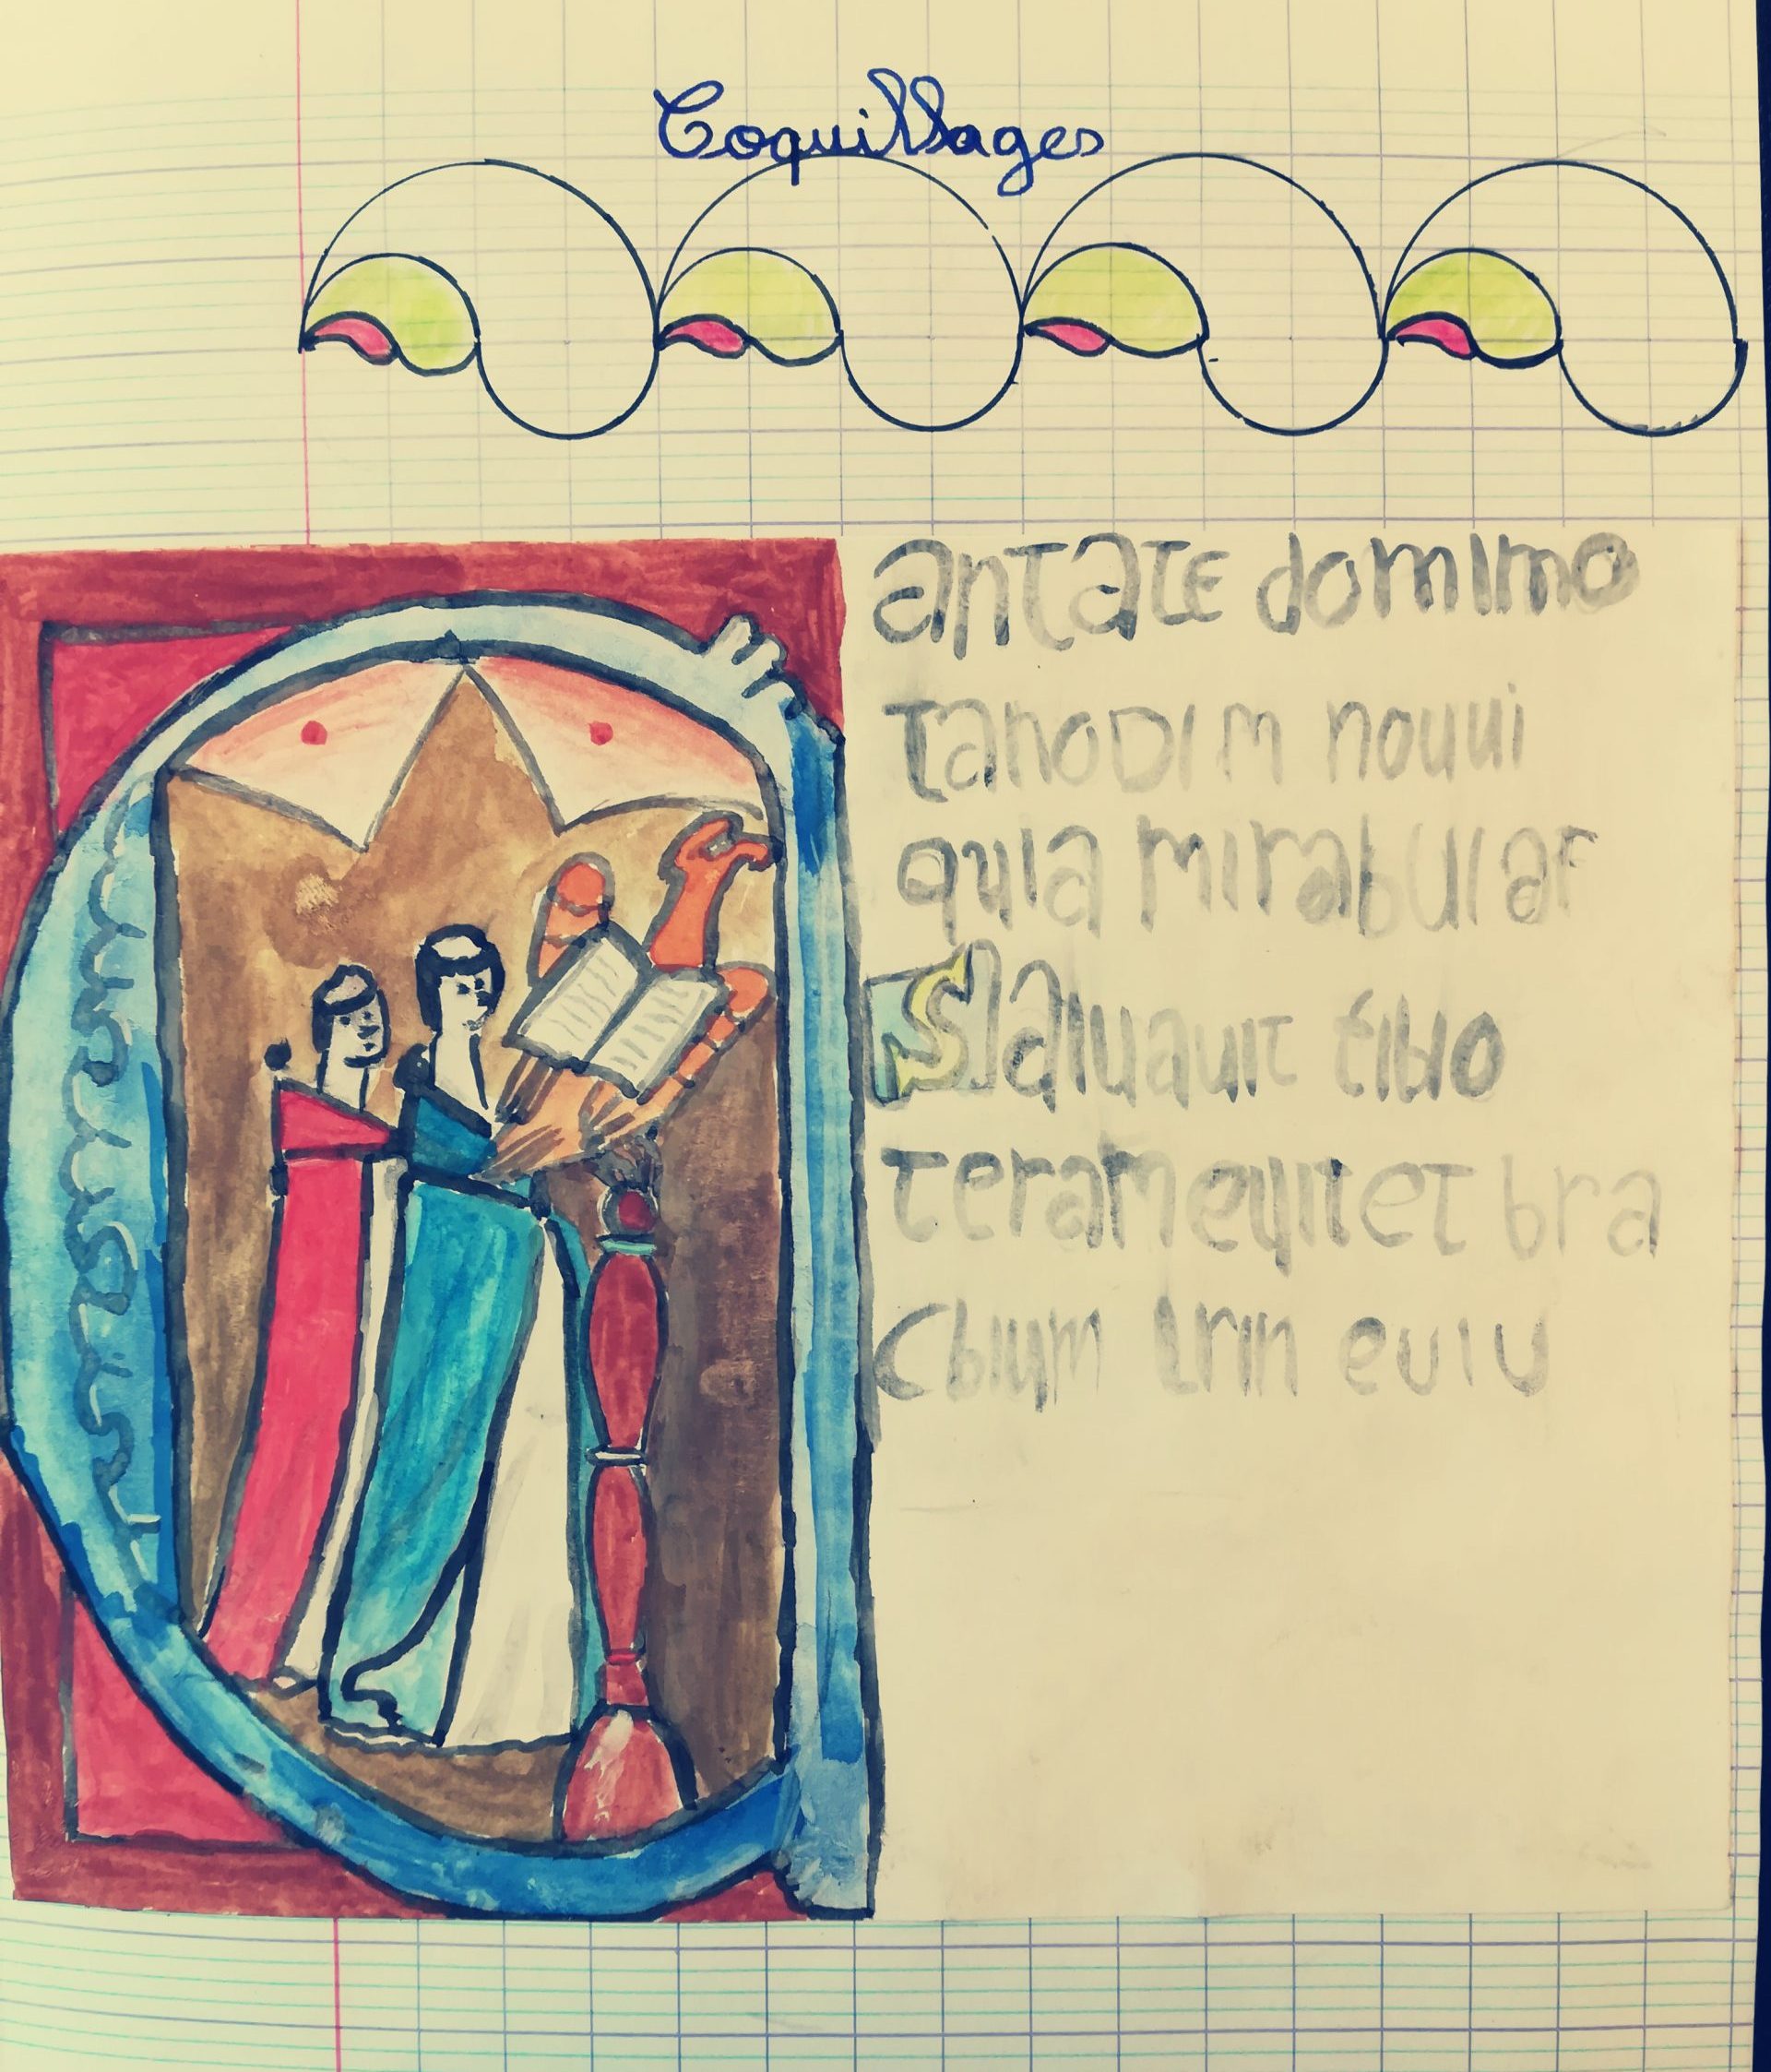 Coquillages
antate domimo
tanodim nouui
quia mirabuiar
Saluauit tibio
teram euitet bra
Cbium trin euiu